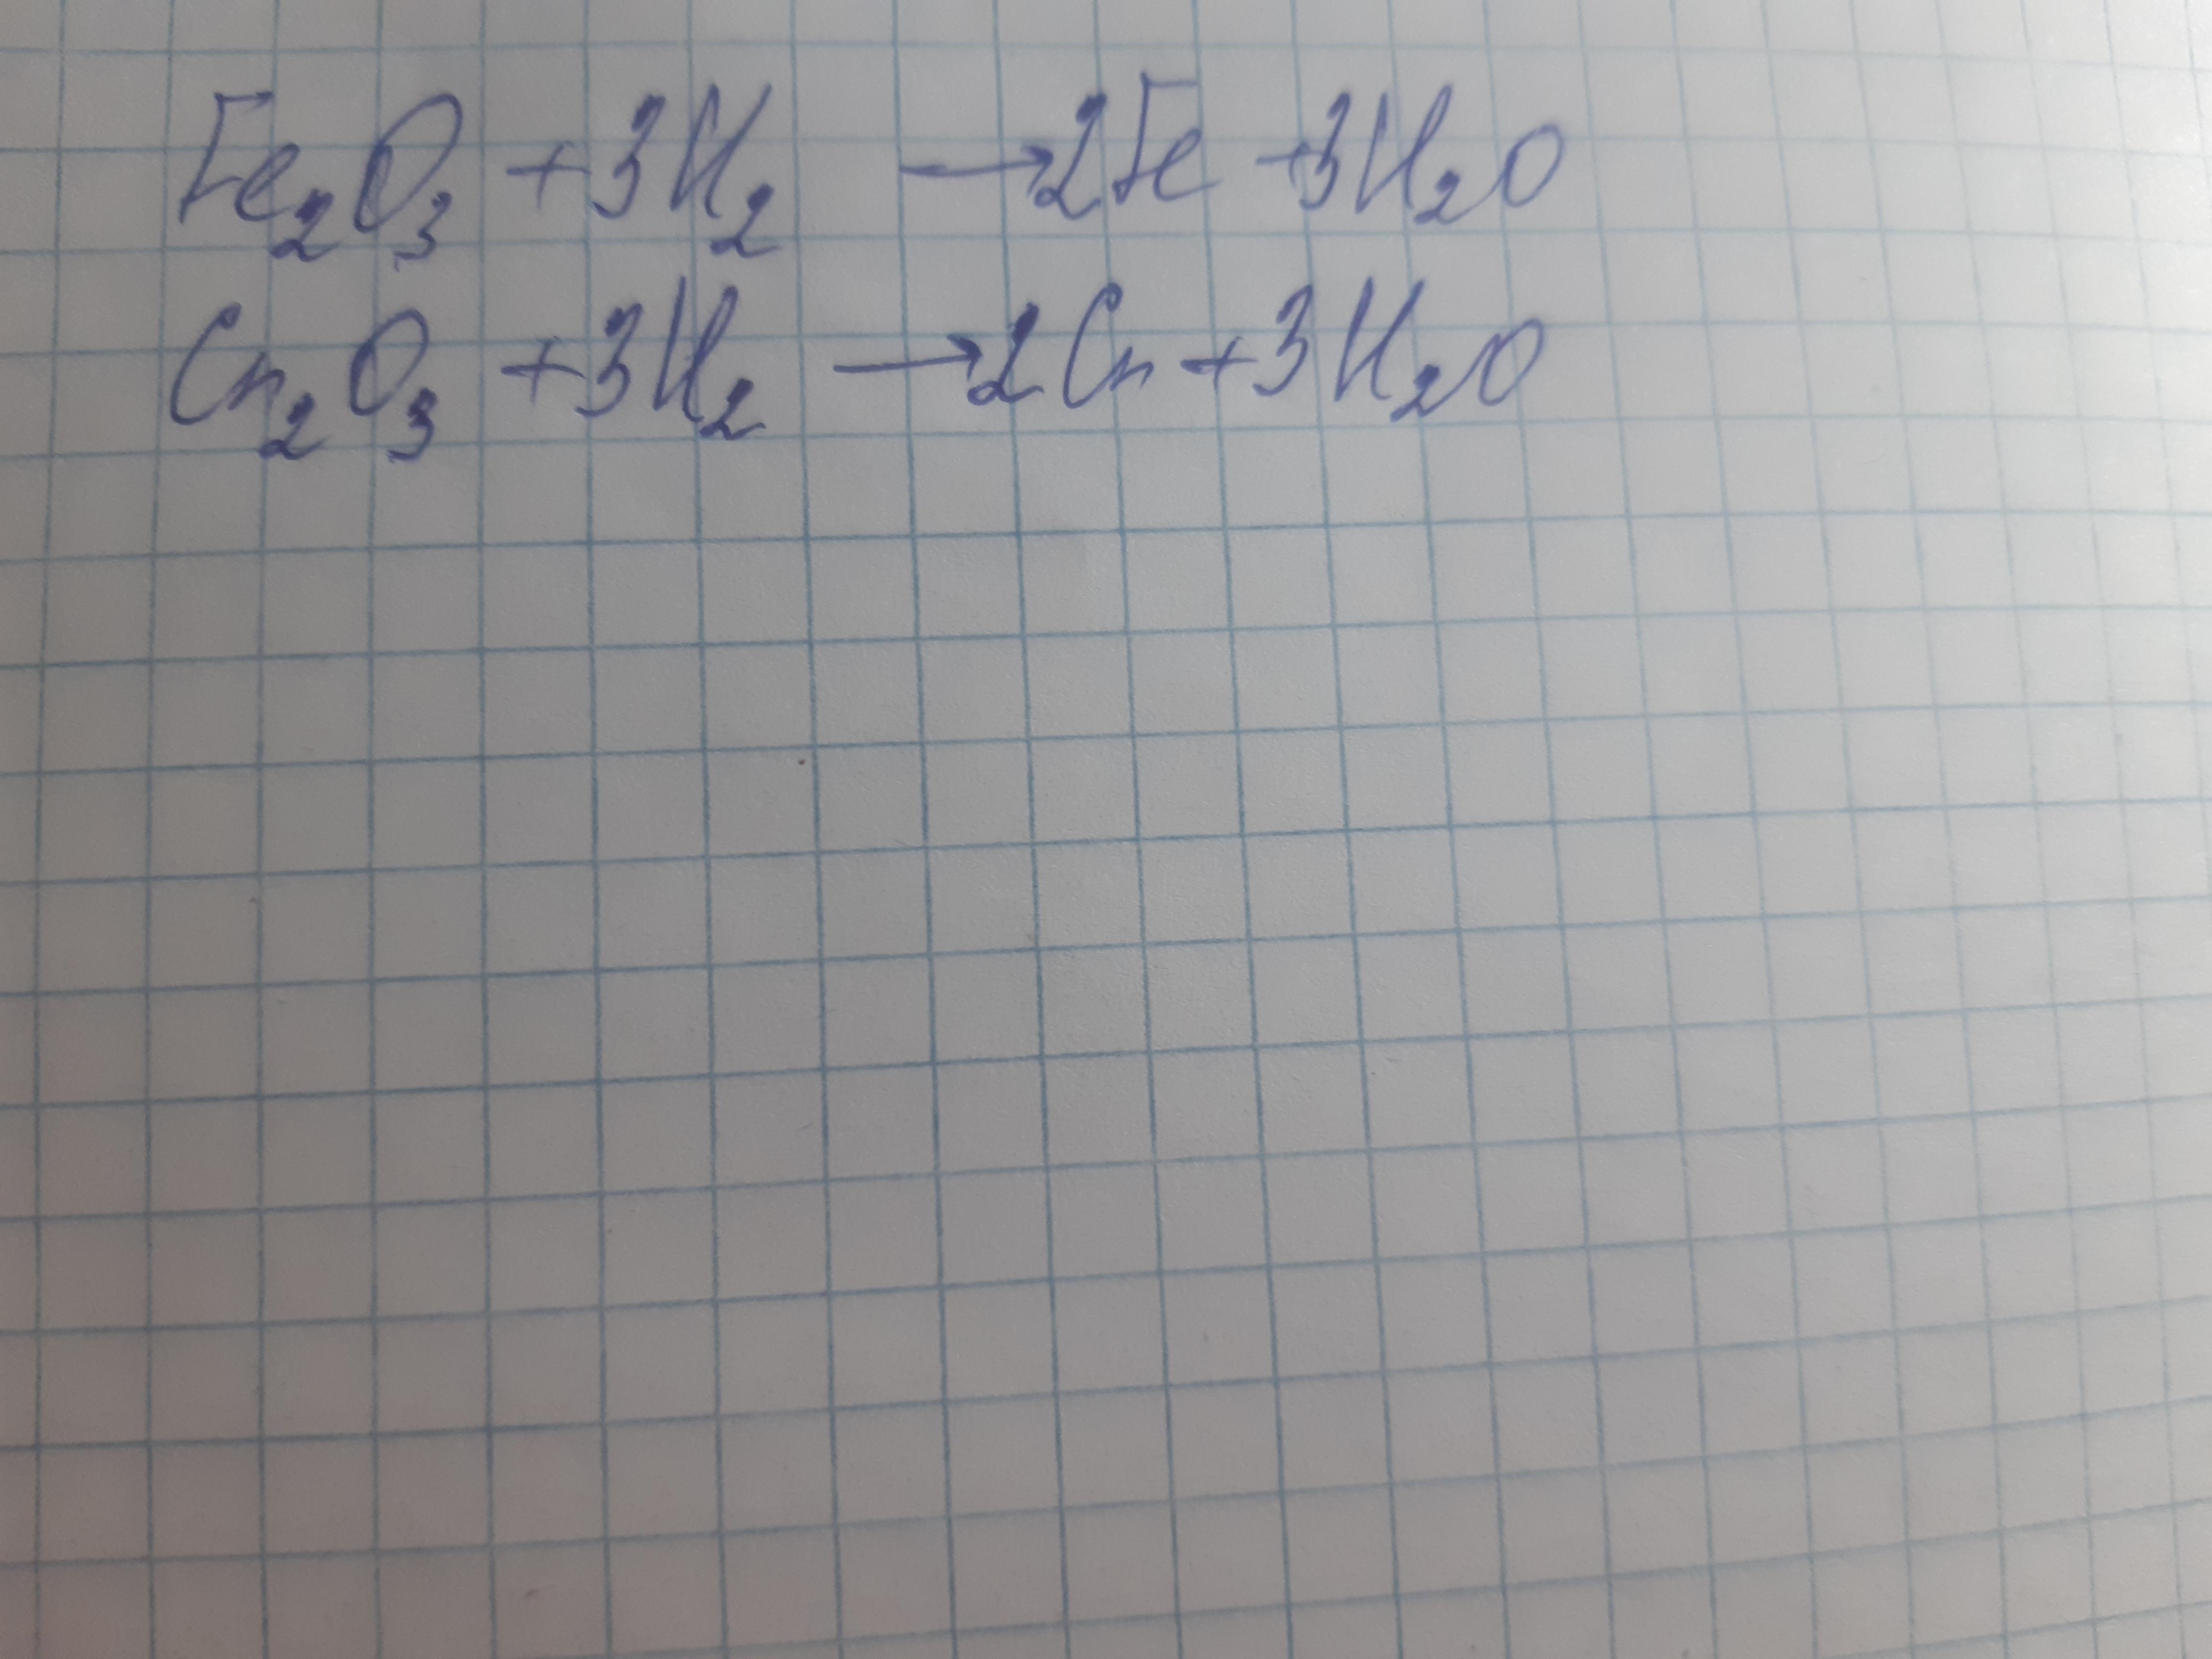 Fe₂O₃ + 3H₂ → 2Fe + 3H₂O
Cr₂O₃ + 3H₂ → 2Cr + 3H₂O